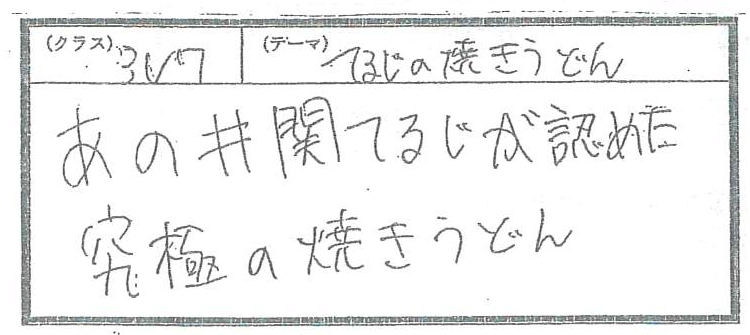 (クラス) (テーマ) てるじの焼きうどん
あの井関てるじが認めた
究極の焼きうどん